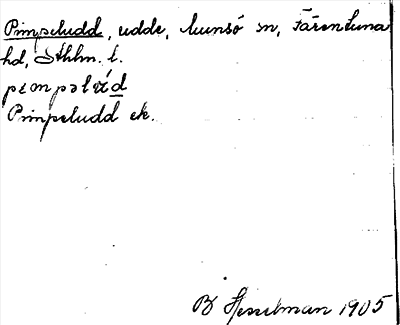 Pimpeludd, udde, Munsö sn, Färentuna
hd, Sthlm. l.
Pimpeludd ek.
B Hesselman 1905